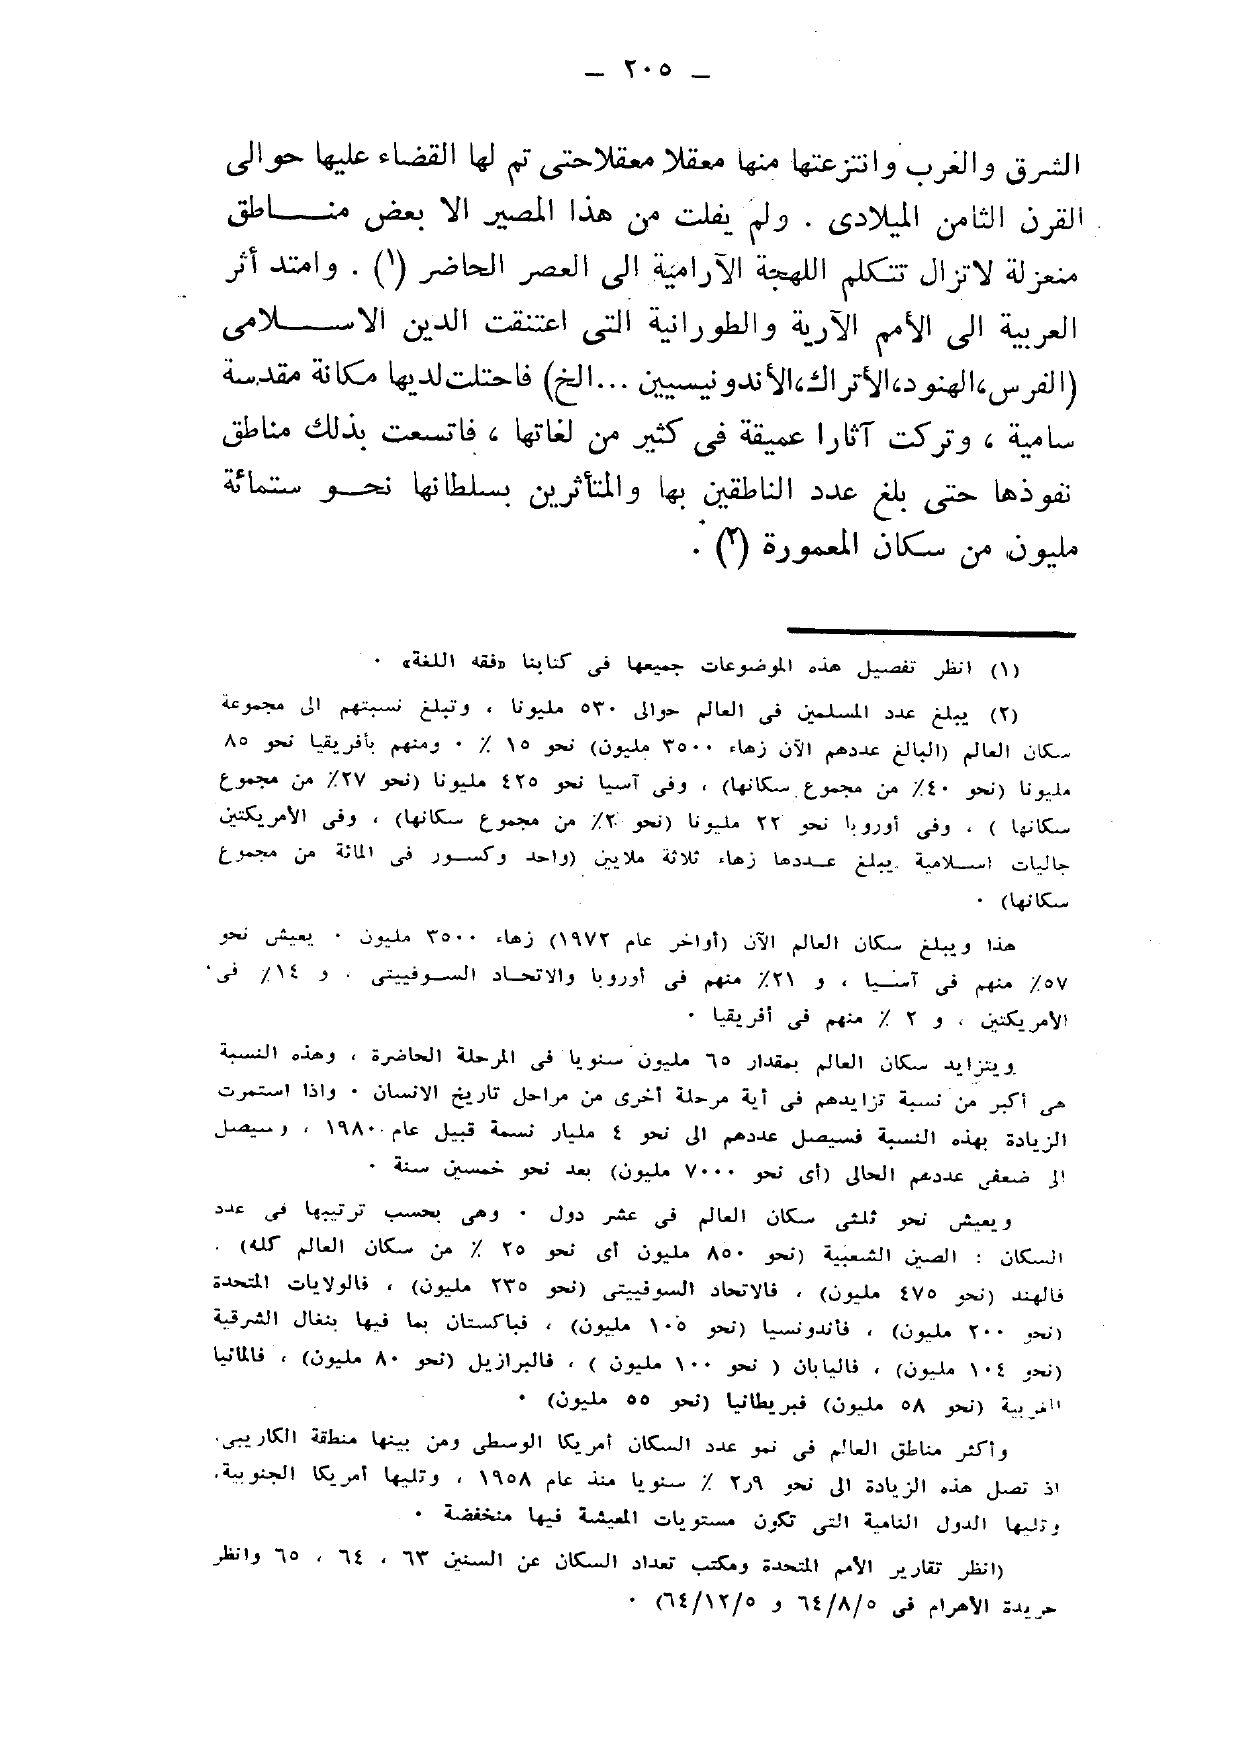 — ٢٠٥ —
الشرق والغرب وانتزعتها منها معقلا معقلاحتى تم لها القضاء عليها حوالى
القرن الثامن الميلادى . ولم يفلت من هذا المصير الا بعض منـــاطق
منعزلة لاتزال تتكلم اللهجة الآرامية الى العصر الحاضر (١) . وامتد أثر
العربية الى الأمم الآرية والطورانية التى اعتنقت الدين الاســـلامى
(الفرس،الهنود،الأتراك،الأندونيسيين ...الخ) فاحتلت لديها مكانة مقدسة
سامية ، وتركت آثارا عميقة فى كثير من لغاتها ، فاتسعت بذلك مناطق
نفوذها حتى بلغ عدد الناطقين بها والمتأثرين بسلطانها نحـــو ستمائة
مليون من سكان المعمورة (٢) .
(١) انظر تفصيل هذه الموضوعات جميعها فى كتابنا «فقه اللغة» .
(٢) يبلغ عدد المسلمين فى العالم حوالى ٥٣٠ مليونا ، وتبلغ نسبتهم الى مجموعة
سكان العالم (البالغ عددهم الآن زهاء ٣٥٠٠ مليون) نحو ١٥ ٪ . ومنهم بأفريقيا نحو ٨٥
مليونا (نحو ٤٠٪ من مجموع سكانها) ، وفى آسيا نحو ٤٢٥ مليونا (نحو ٢٧٪ من مجموع
سكانها ) ، وفى أوروبا نحو ٢٢ مليونا (نحو ٢٪ من مجموع سكانها) ، وفى الأمريكتين
جاليات اسـلامية يبلغ عـددها زهاء ثلاثة ملايين (واحد وكسور فى المائة من مجموع
سكانها) .
هذا ويبلغ سكان العالم الآن (أواخر عام ١٩٧٢) زهاء ٣٥٠٠ مليون . يعيش نحو
٥٧٪ منهم فى آسـيا ، و ٢١٪ منهم فى أوروبا والاتحـاد السـوفييتى . و ١٤٪ فى
الأمريكتين ، و ٢ ٪ منهم فى أفريقيا .
ويتزايد سكان العالم بمقدار ٦٥ مليون سنويا فى المرحلة الحاضرة ، وهذه النسبة
هى أكبر من نسبة تزايدهم فى أية مرحلة أخرى من مراحل تاريخ الانسان . واذا استمرت
الزيادة بهذه النسبة فسيصل عددهم الى نحو ٤ مليار نسمة قبيل عام ١٩٨٠ ، وسيصل
الى ضعفى عددهم الحالى (أى نحو ٧٠٠٠ مليون) بعد نحو خمسين سنة .
ويعيش نحو ثلثى سكان العالم فى عشر دول . وهى بحسب ترتيبها فى عدد
السكان : الصين الشعبية (نحو ٨٥٠ مليون أى نحو ٢٥ ٪ من سكان العالم كله) .
فالهند (نحو ٤٧٥ مليون) ، فالاتحاد السوفييتى (نحو ٢٣٥ مليون) ، فالولايات المتحدة
(نحو ٢٠٠ مليون) ، فأندونسيا (نحو ١٠٥ مليون) ، فباكستان بما فيها بنغال الشرقية
(نحو ١٠٤ مليون) ، فاليابان ( نحو ١٠٠ مليون ) ، فالبرازيل (نحو ٨٠ مليون) ، فالمانيا
الغربية (نحو ٥٨ مليون) فبريطانيا (نحو ٥٥ مليون) .
وأكثر مناطق العالم فى نمو عدد السكان أمريكا الوسطى ومن بينها منطقة الكاريبى،
اذ تصل هذه الزيادة الى نحو ٢٫٩ ٪ سنويا منذ عام ١٩٥٨ ، وتليها أمريكا الجنوبية،
وتليها الدول النامية التى تكون مستويات المعيشة فيها منخفضة .
(انظر تقارير الأمم المتحدة ومكتب تعداد السكان عن السنين ٦٣ ، ٦٤ ، ٦٥ وانظر
جريدة الأهرام فى ٦٤/٨/٥ و ٦٤/١٢/٥) .